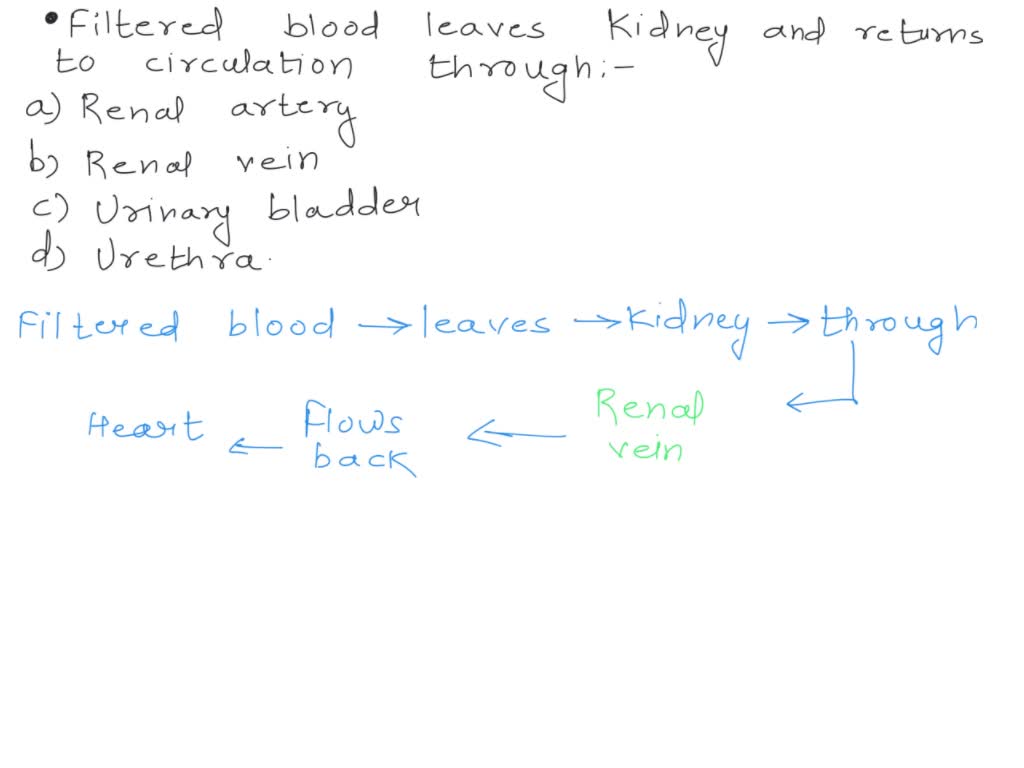 • Filtered blood leaves Kidney and returns
to circulation through:-
a) Renal artery
b) Renal vein
c) Urinary bladder
d) Urethra.
Filtered blood → leaves → Kidney → through
Renal
vein
← Flows
back
← Heart